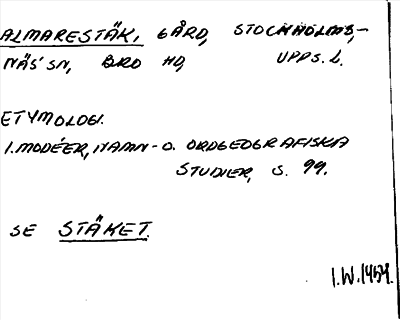 ALMARESTÄK, GÅRD, STOCKHOLMS,-
NÄS' SN, BRO HD, UPPS. L.
ETYMOLOGI.
I. MODÉER, NAMN- O. ORDGEOGRAFISKA
STUDIER, S. 99.
SE STÄKET.
I.W. 1959.